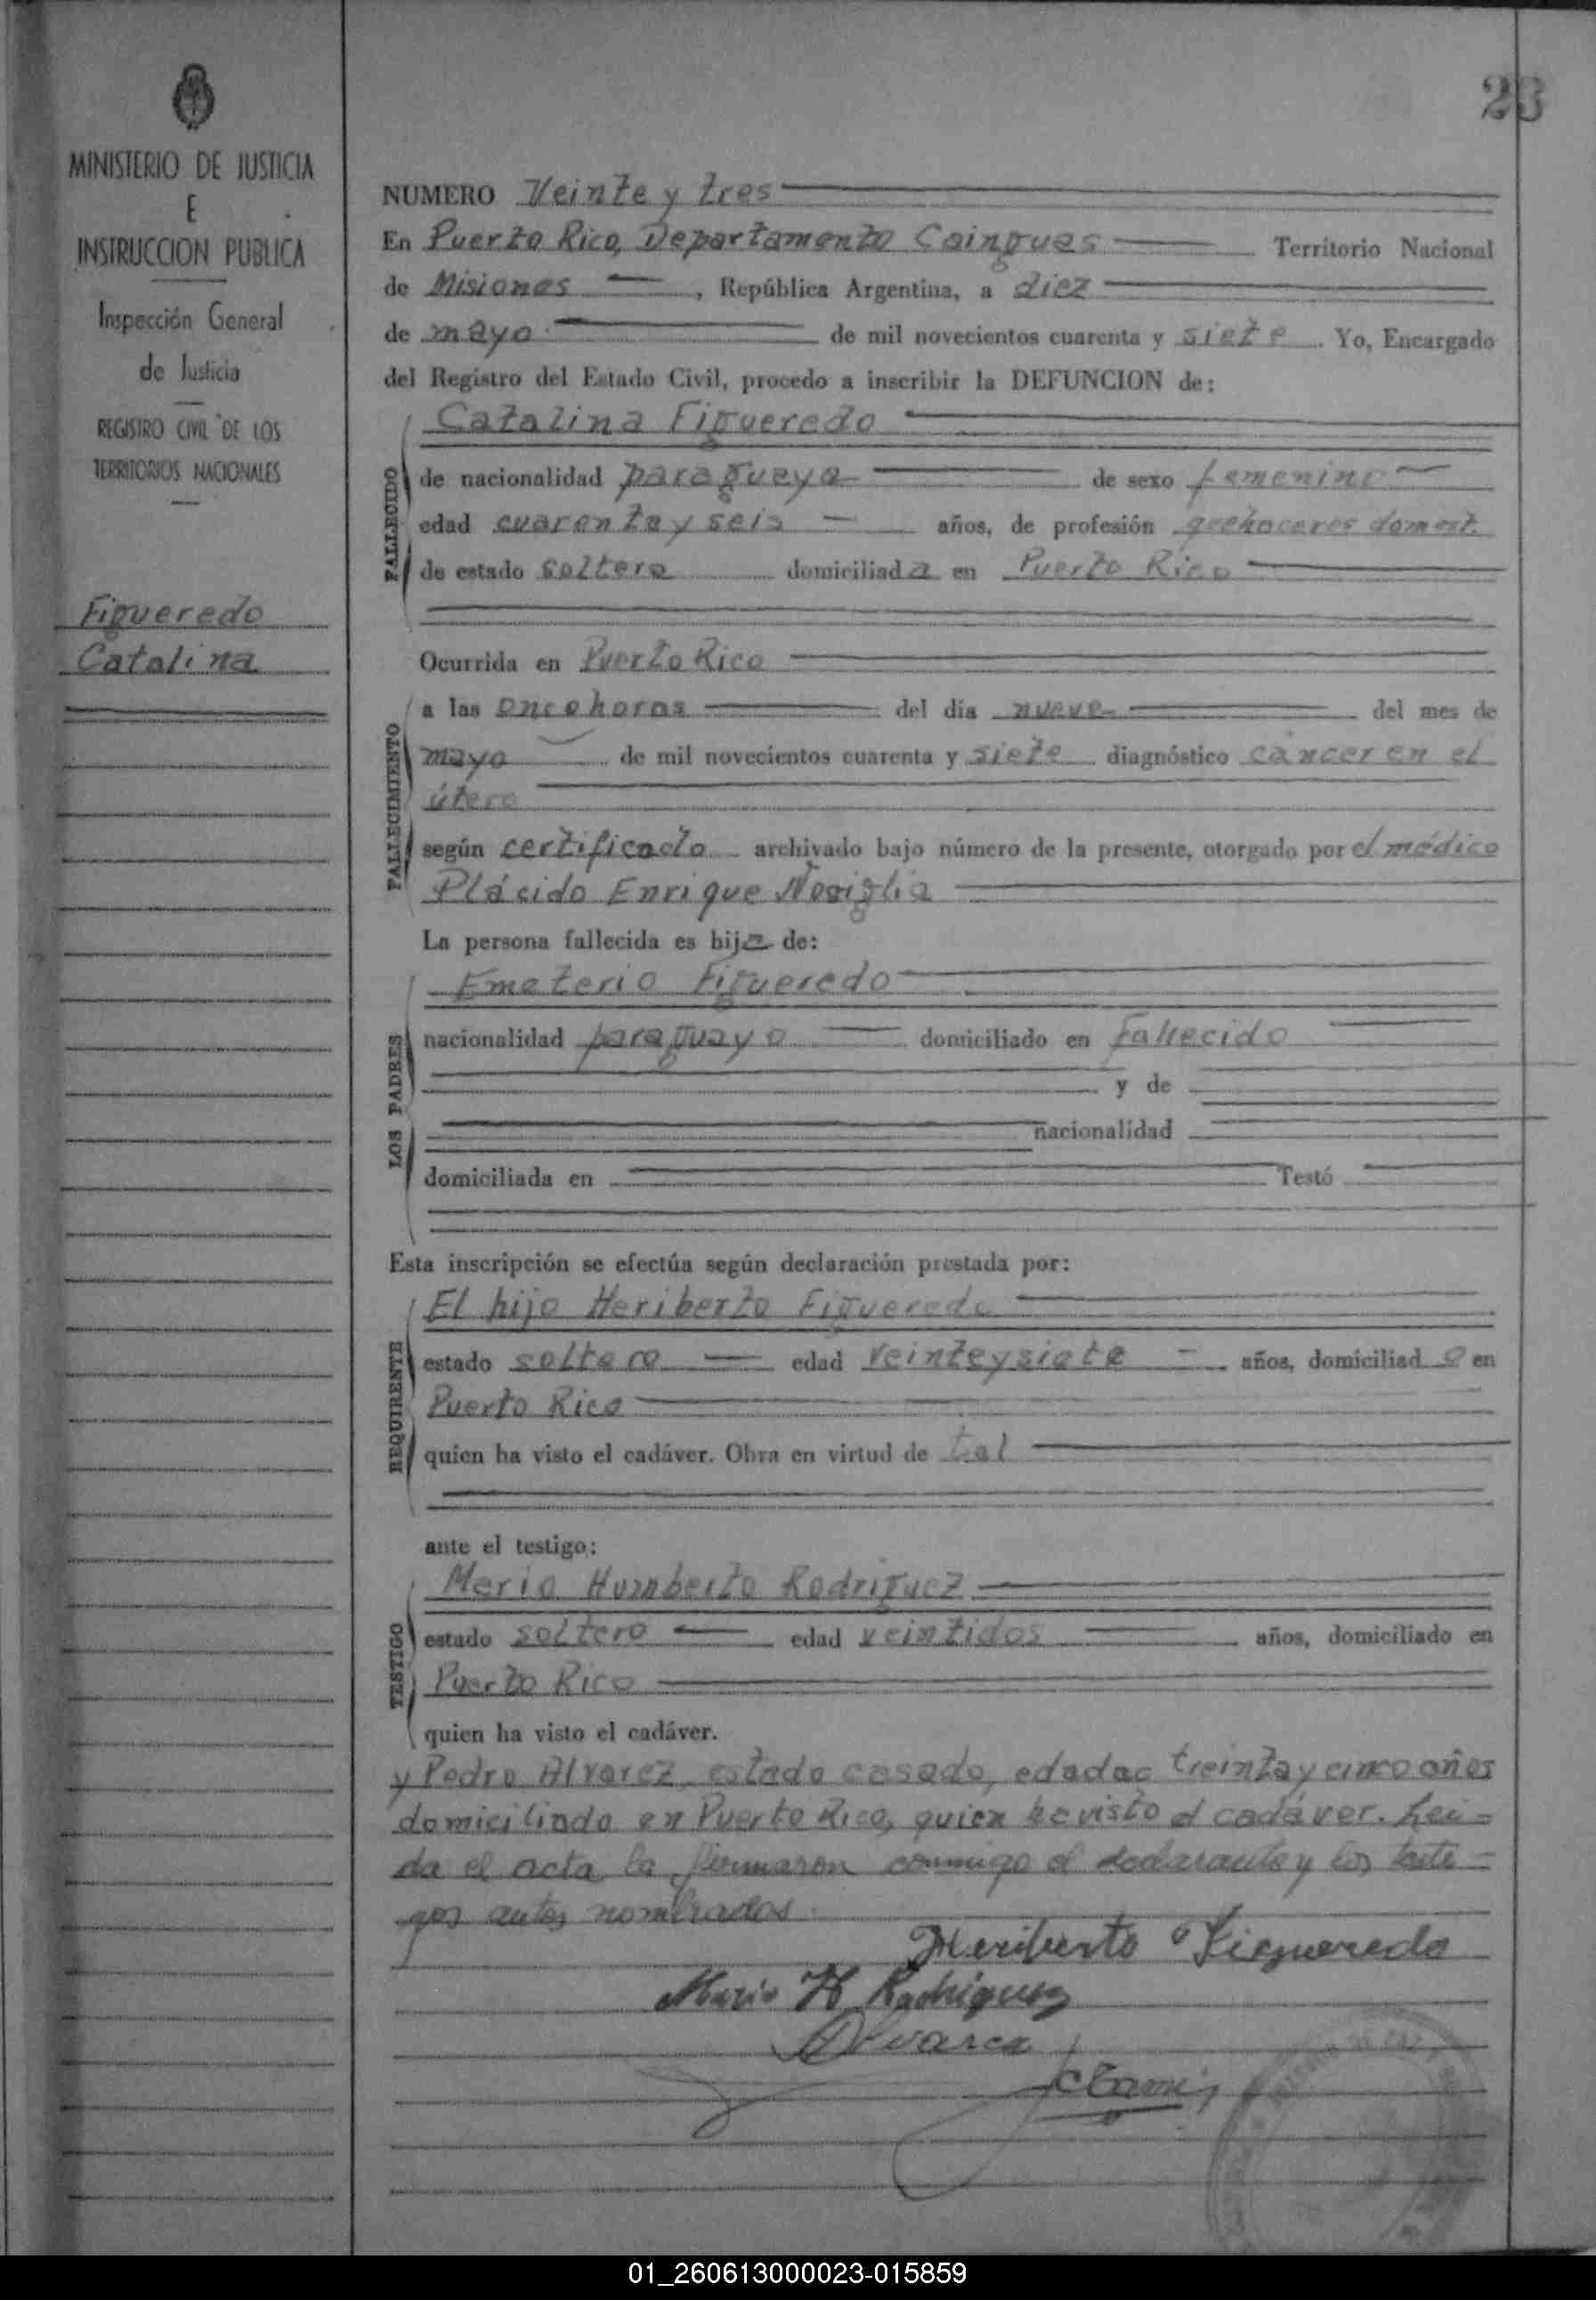 23
MINISTERIO DE JUSTICIA
E
INSTRUCCION PUBLICA
Inspección General
de Justicia
REGISTRO CIVIL DE LOS
TERRITORIOS NACIONALES
Figueredo
Catalina
NUMERO Veinte y tres
En Puerto Rico, Departamento Caingues Territorio Nacional
de Misiones, República Argentina, a diez
de mayo de mil novecientos cuarenta y siete. Yo, Encargado
del Registro del Estado Civil, procedo a inscribir la DEFUNCION de:
FALLECIDO
Catalina Figueredo
de nacionalidad paraguaya de sexo femenino
edad cuarenta y seis años, de profesión quehaceres domest.
de estado soltera domiciliada en Puerto Rico
FALLECIMIENTO
Ocurrida en Puerto Rico
a las once horas del día nueve del mes de
mayo de mil novecientos cuarenta y siete diagnóstico cáncer en el
útero
según certificado archivado bajo número de la presente, otorgado por el médico
Plácido Enrique Nosiglia
La persona fallecida es hija de:
LOS PADRES
Emeterio Figueredo
nacionalidad paraguayo domiciliado en Fallecido
y de
nacionalidad
domiciliada en Testó
Esta inscripción se efectúa según declaración prestada por:
REQUIRENTE
El hijo Heriberto Figueredo
estado soltero edad veinte y siete años, domiciliado en
Puerto Rico
quien ha visto el cadáver. Obra en virtud de tal
ante el testigo:
TESTIGO
Mario Humberto Rodriguez
estado soltero edad veintidos años, domiciliado en
Puerto Rico
quien ha visto el cadáver.
y Pedro Alvarez, estado casado, edadac treinta y cinco años
domiciliado en Puerto Rico, quien ha visto el cadáver. Lei-
da el acta la firmaron conmigo el declarante y los testi-
gos antes nombrados.
Heriberto Figueredo
Mario H Rodriguez
Alvarez
01_260613000023-015859